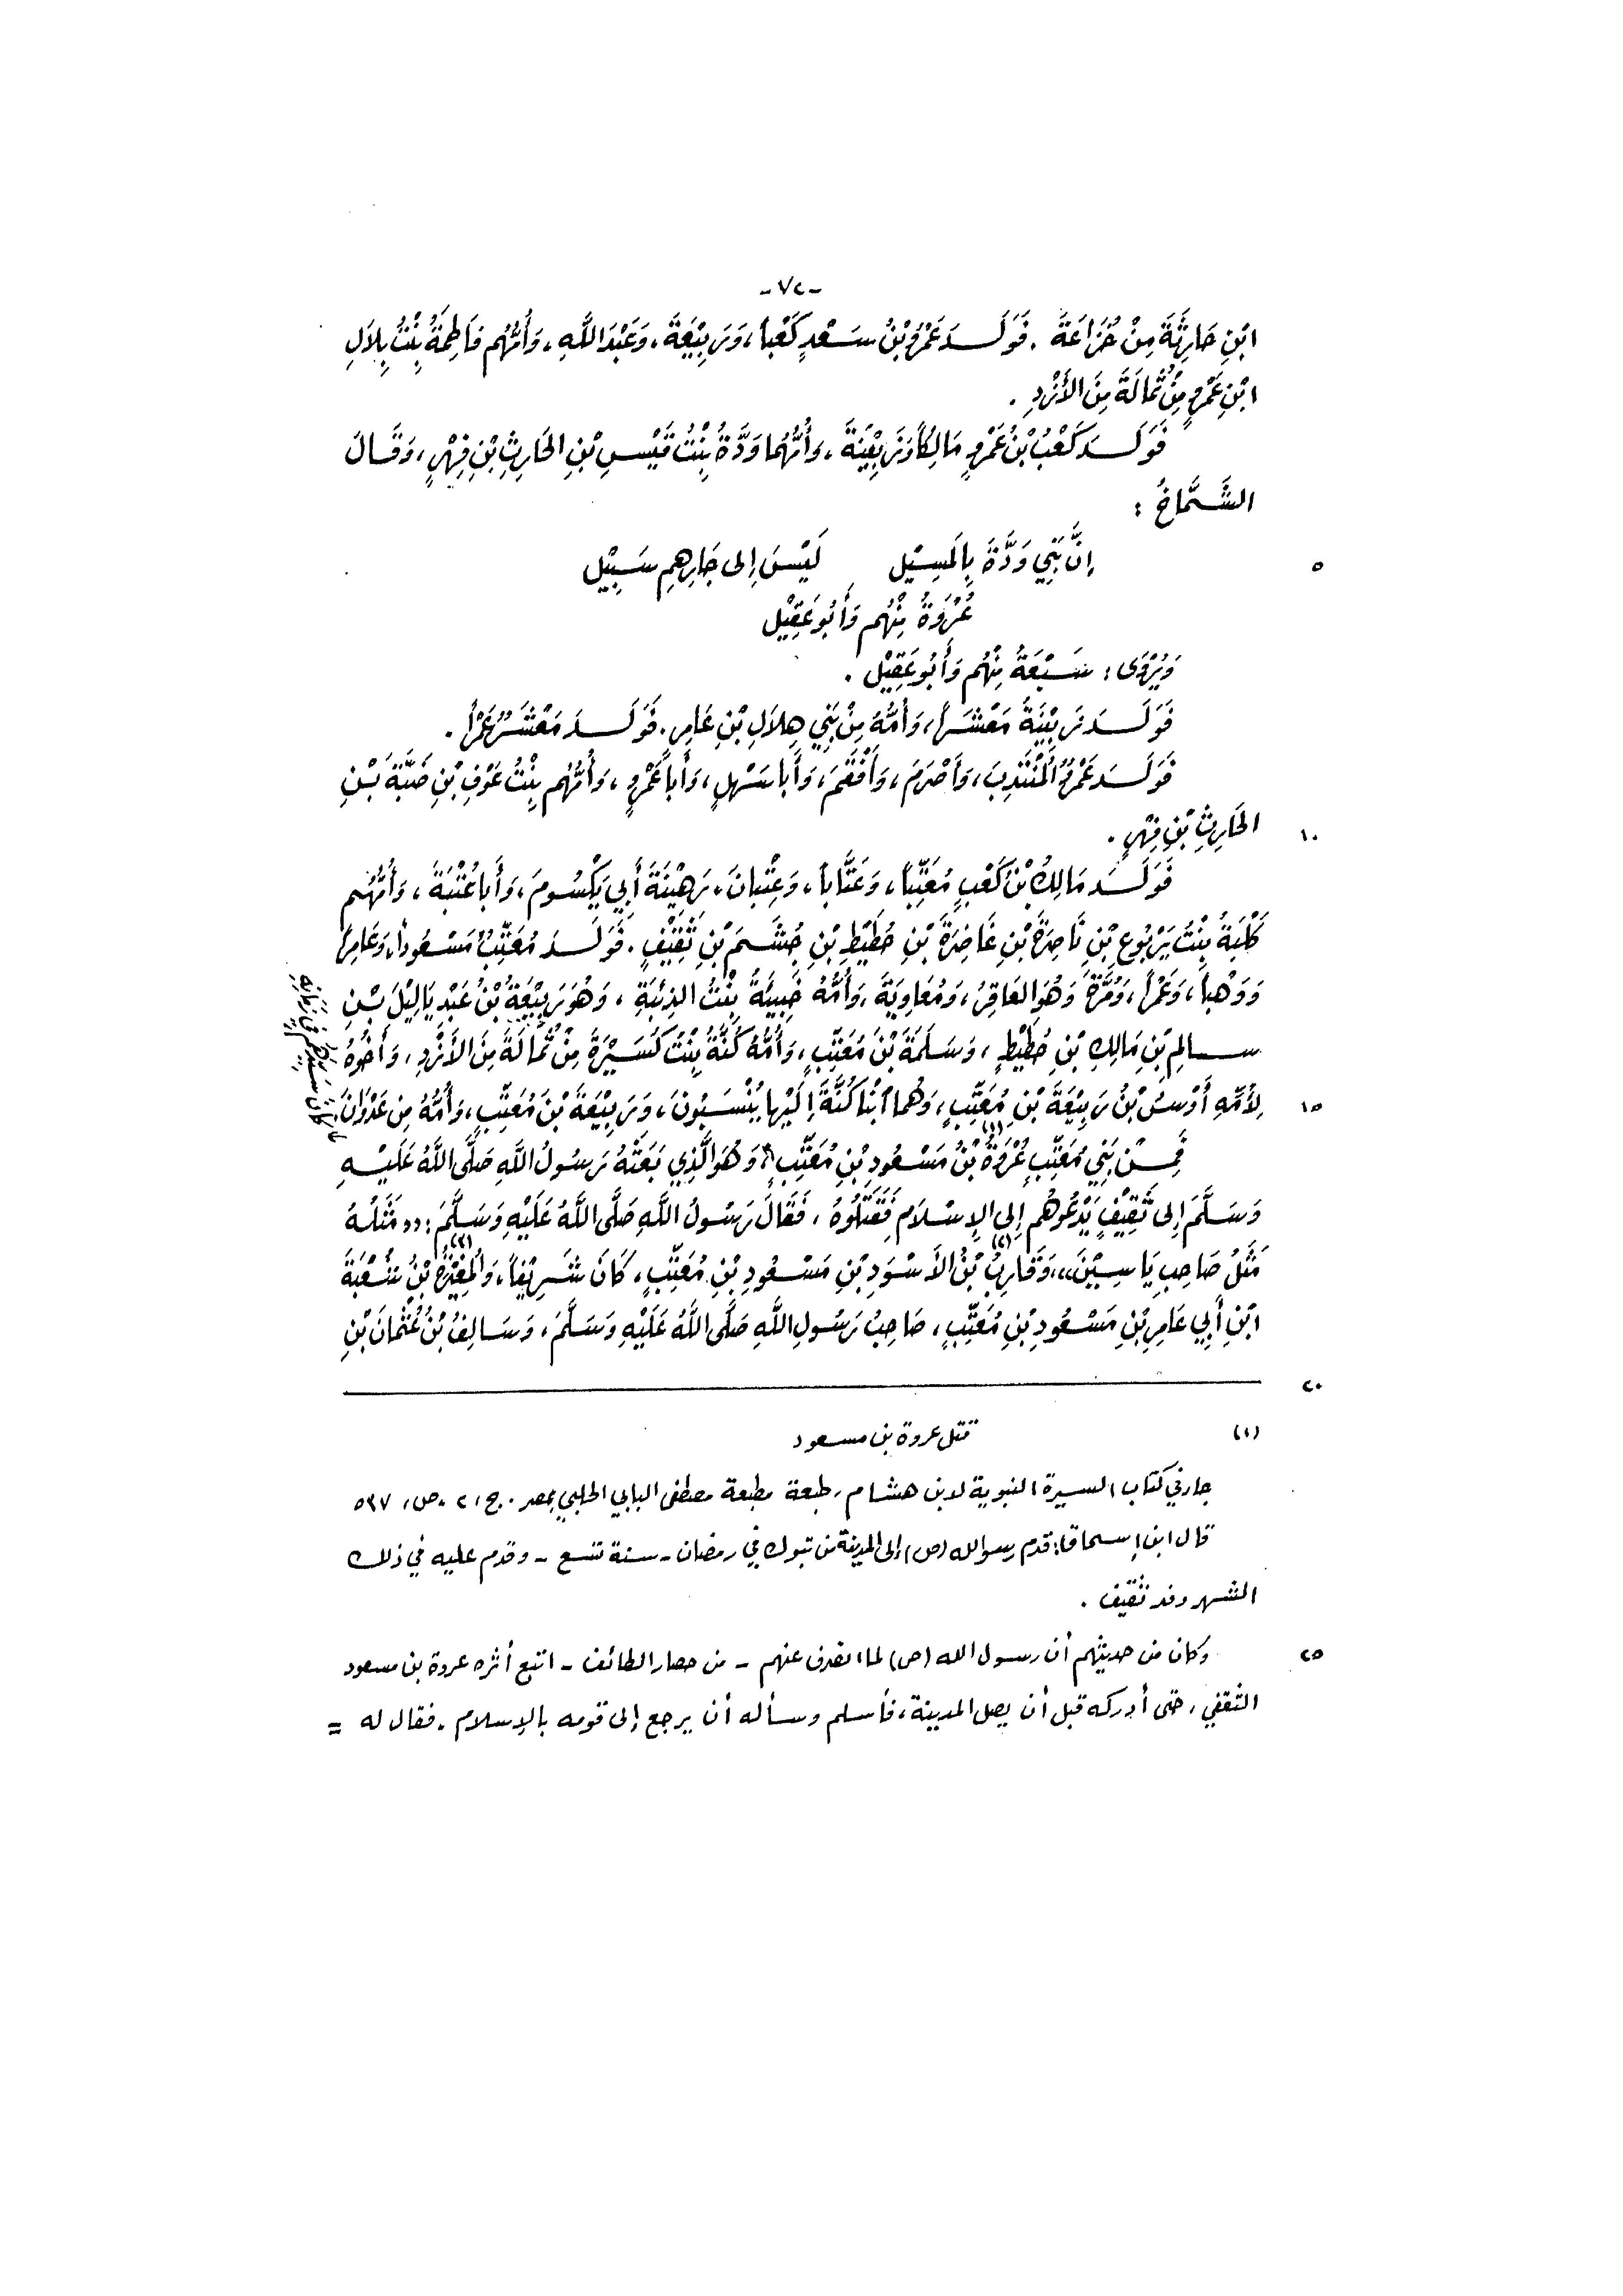 -٧٢-
ابْنِ حَارِثَةَ مِنْ خُزَاعَةَ . فَوَلَــدَ عَمْرُو بْنُ سَـعْدٍ كَعْباً، وَرَبِيْعَةَ، وَعَبْدَ اللَّهِ، وَأُمُّهُم فَاطِمَةُ بِنْتُ بِلاَلِ
ابْنِ عَمْرٍو مِنْ ثُمَالَةَ مِنَ الأَزْدِ .
فَوَلَــدَ كَعْبُ بْنُ عَمْرٍو مَالِكاً وَرَبِيْعَةَ، وَأُمُّهُمَا وَدَّةُ بِنْتُ قَيْسِ بْنِ الحَارِثِ بْنِ فِهْرٍ، وَقَــالَ
الشَّـمَّاخُ :
إِنَّ بَنِي وَدَّةَ بِالمَسِـيْلِ لَيْسَ إِلى جَارِهِمِ سَـبِيْلِ
٥
عُرْوَةُ مِنْهُم وَأَبُو عَقِيْلِ
وَيُرْوَى : سَـبْعَةُ مِنْهُم وَأَبُو عَقِيْلِ .
فَوَلَــدَ رَبِيْعَةُ مَعْشَـراً، وَأُمُّهُ مِنْ بَنِي هِلاَلِ بْنِ عَامِرٍ. فَوَلَــدَ مَعْشَـرٌ عَمْراً .
فَوَلَــدَ عَمْرٌو المُنْتَدِبَ، وَأَصْرَمَ، وَأَفْقَمَ، وَأَبا سَـهْلٍ، وَأَبا عَمْرٍو، وَأُمُّهُم بِنْتُ عَوْفِ بْنِ ضَبَّةَ بْـنِ
الحَارِثِ بْنِ فِهْرٍ .
١٠
فَوَلَــدَ مَالِكُ بْنُ كَعْبٍ مُعَتِّباً، وَعَتَّاباً، وَعِتْبانَ، رَهِيْنَةَ أَبِي يَكْسُومَ، وَأَبا عُتْبَةَ، وَأُمُّهُم
كُلْبَةُ بِنْتُ يَرْبُوعِ بْنِ نَاصِرَةَ بْنِ غَاضِرَةَ بْنِ حُطَيْطِ بْنِ جُشَـمَ بْنِ ثَقِيْفٍ . فَوَلَــدَ مُعَتِّبٌ مَسْـعُوداً، وَعَامِراً
وَوَهْباً، وَعَمْراً، وَمُرَّةَ وَهُوَ العَاقِرُ، وَمُعَاوِيَةَ، وَأُمُّهُ خَبِيئَةُ بِنْتُ الذِئْبَةِ، وَهُوَ رَبِيْعَةُ بْنُ عَبْدِ يَالِيْلَ بْـنِ
ســالِمِ بْنِ مَالِكِ بْنِ حُطَيْطٍ، وَسَـلَمَةَ بْنَ مُعَتِّبٍ، وَأُمُّهُ كُنَّةُ بِنْتُ كُسَـيْرَةَ مِنْ ثُمَالَةَ مِنَ الأَزْدِ، وَأَخُوهُ
لِأُمِّهِ أَوْسُ بْنُ رَبِيْعَةَ بْنِ مُعَتِّبٍ، وَهُمَا ابْنَا كُنَّةَ إِلَيْها يُنْسَـبُونَ، وَرَبِيْعَةَ بْنَ مُعَتِّبٍ، وَأُمُّهُ مِن عَدْوَانَ.
١٥
فَمِــنْ بَنِي مُعَتِّبٍ عُرْوَةُ (١) بْنُ مَسْـعُودِ بْنِ مُعَتِّبٍ، وَهُوَ الَّذِي بَعَثَهُ رَسُولُ اللَّهِ صَلَّى اللَّهُ عَلَيْـهِ
وَسَـلَّمَ إِلى ثَقِيْفٍ يَدْعُوهُم إِلى الإِسْـلاَمِ فَقَتَلُوهُ، فَقَالَ رَسُولُ اللَّهِ صَلَّى اللَّهُ عَلَيْهِ وَسَـلَّمَ : ,, مَثَلُـهُ
مَثَلُ صَاحِبِ يَاسِـيْنَ،، وَقَارِبُ (٢) بْنُ الأَسْـوَدِ بْنِ مَسْـعُودِ بْنِ مُعَتِّبٍ، كَانَ شَـرِيْفاً، وَالمُغِيْرَةُ (٣) بْنُ شُـعْبَةَ
ابْنِ أَبِي عَامِرِ بْنِ مَسْـعُودِ بْنِ مُعَتِّبٍ، صَاحِبُ رَسُولِ اللَّهِ صَلَّى اللَّهُ عَلَيْهِ وَسَـلَّمَ، وَسَـالِفُ بْنُ عُثْمَانَ بْنِ
٢٠
(١) مقتل عروة بن مسـعود
جاء في كتاب السـيرة النبوية لابن هشـام، طبعة مطبعة مصطفى البابي الحلبي بمصر . ج: ٢ ، ص: ٥٣٧
قال ابن إسـحاق: قدم رسول الله (ص) إلى المدينة من تبوك في رمضان - سـنة تسـع - وقدم عليه في ذلك
الشـهر وفد ثقيف .
وكان من حديثهم أن رسـول الله (ص) لما انصرف عنهم - من حصار الطائف - اتبع أثره عروة بن مسعود
٢٥
الثقفي، حتى أدركه قبل أن يصل المدينة، فأسـلم وسـأله أن يرجع إلى قومه بالإسـلام، فقال له =